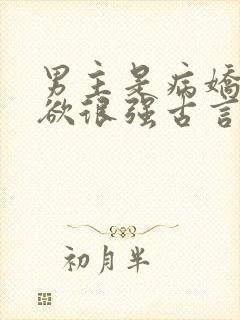 男主是病娇
欲很强古言
初月半